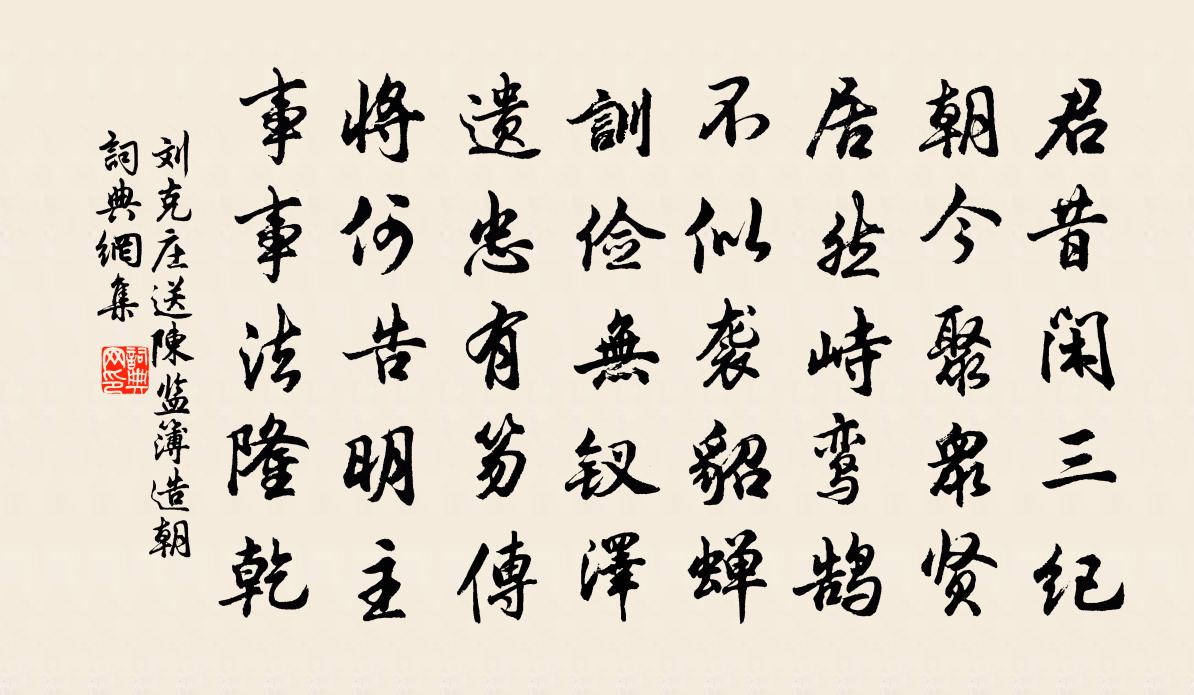 君昔閑三紀
朝今聚眾贤
居然峙鸾鹄
不似袭貂蝉
訓俭無钗澤
遗忠有笏傳
将何告明主
事事法隆乾
刘克庄送陳监簿造朝
詞典網集
詞典网印